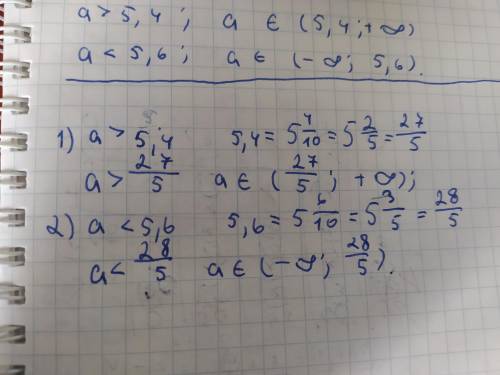 a > 5,4 ; a ∈ (5,4 ; +∞)
a < 5,6 ; a ∈ (-∞; 5,6).
1) a > 5,4 5,4 = 5 4/10 = 5 2/5 = 27/5
a > 27/5 a ∈ (27/5 ; +∞);
2) a < 5,6 5,6 = 5 6/10 = 5 3/5 = 28/5
a < 28/5 a ∈ (-∞; 28/5).